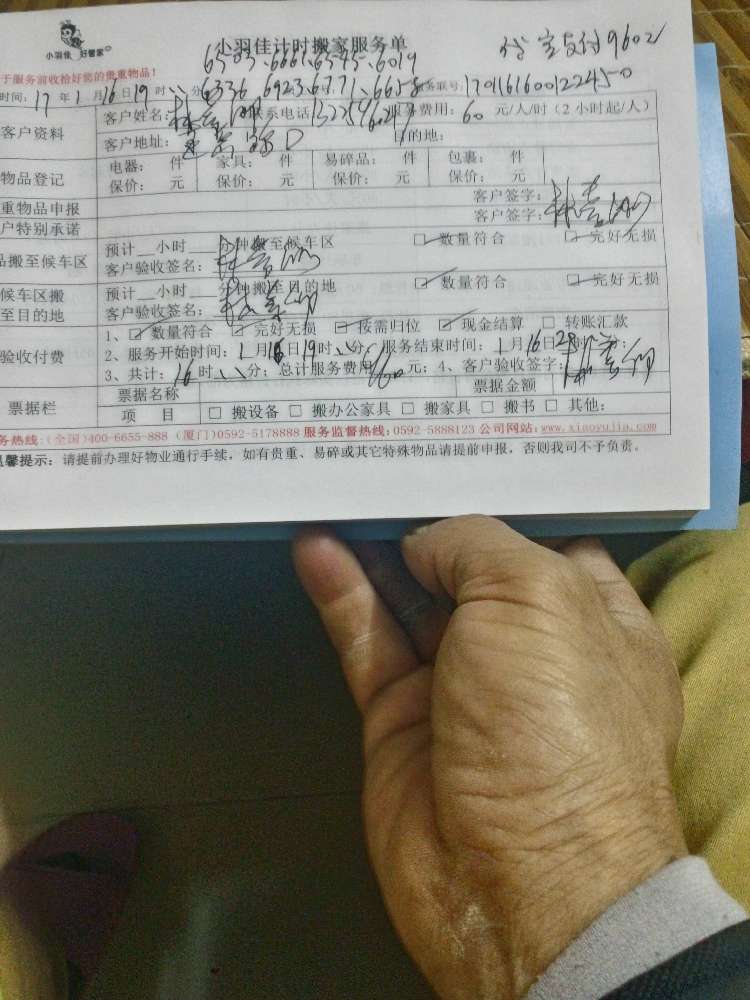 小羽佳 好管家
小羽佳计时搬家服务单
支付9602
6503、6661、6545、6019
于服务前收拾好您的贵重物品！
6336、6923、6771、6658
务联号：170116160012245-0
时间：17年1月16日19时 分
客户资料
客户姓名：
联系电话：
服务费用：60元/人/时（2小时起/人）
客户地址：
目的地：
物品登记
电器： 件 家具： 件 易碎品： 件 包裹： 件
保价： 元 保价： 元 保价： 元 保价： 元
重物品申报 客户签字：
户特别承诺 客户签字：
品搬至候车区
预计__小时__分钟搬至候车区 ☑数量符合 ☑完好无损
客户验收签名：
候车区搬
至目的地
预计__小时__分钟搬至目的地 ☑数量符合 ☑完好无损
客户验收签名：
验收付费
1、☑数量符合 ☑完好无损 ☑按需归位 ☑现金结算 □转账汇款
2、服务开始时间：1月16日19时 分、服务结束时间：1月16日
3、共计：16时 分；总计服务费用 元；4、客户验收签字：
票据栏
票据名称 票据金额
项 目 □搬设备 □搬办公家具 □搬家具 □搬书 □其他：
务热线：(全国)400-6655-888 (厦门)0592-5178888 服务监督热线：0592-5888123 公司网站：www.xiaoyujia.com
温馨提示：请提前办理好物业通行手续，如有贵重、易碎或其它特殊物品请提前申报，否则我司不予负责。